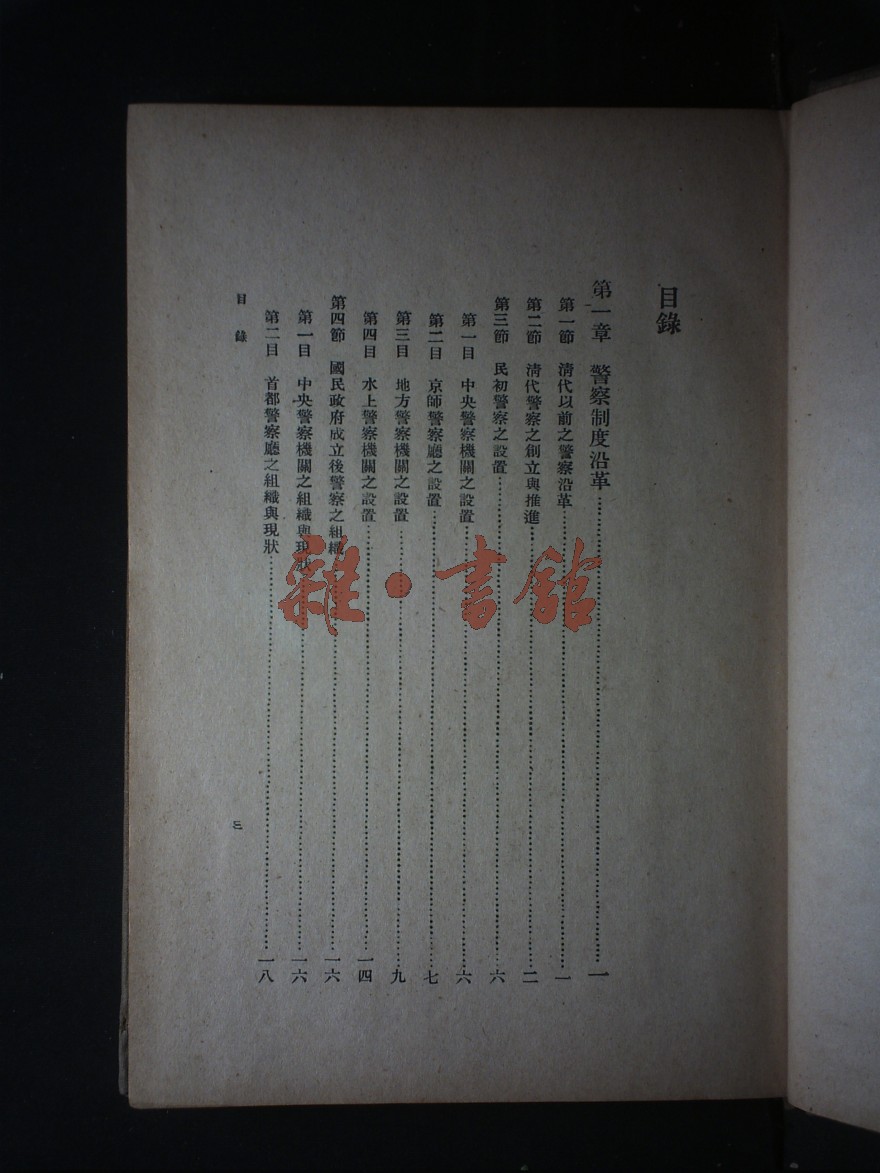 目錄
第一章　警察制度沿革……一
第一節　清代以前之警察沿革……一
第二節　清代警察之創立與推進……二
第三節　民初警察之設置……六
第一目　中央警察機關之設置……六
第二目　京師警察廳之設置……七
第三目　地方警察機關之設置……九
第四目　水上警察機關之設置……一四
第四節　國民政府成立後警察之組織……一六
第一目　中央警察機關之組織與現狀……一六
第二目　首都警察廳之組織與現狀……一八
目錄　三
雜·書館